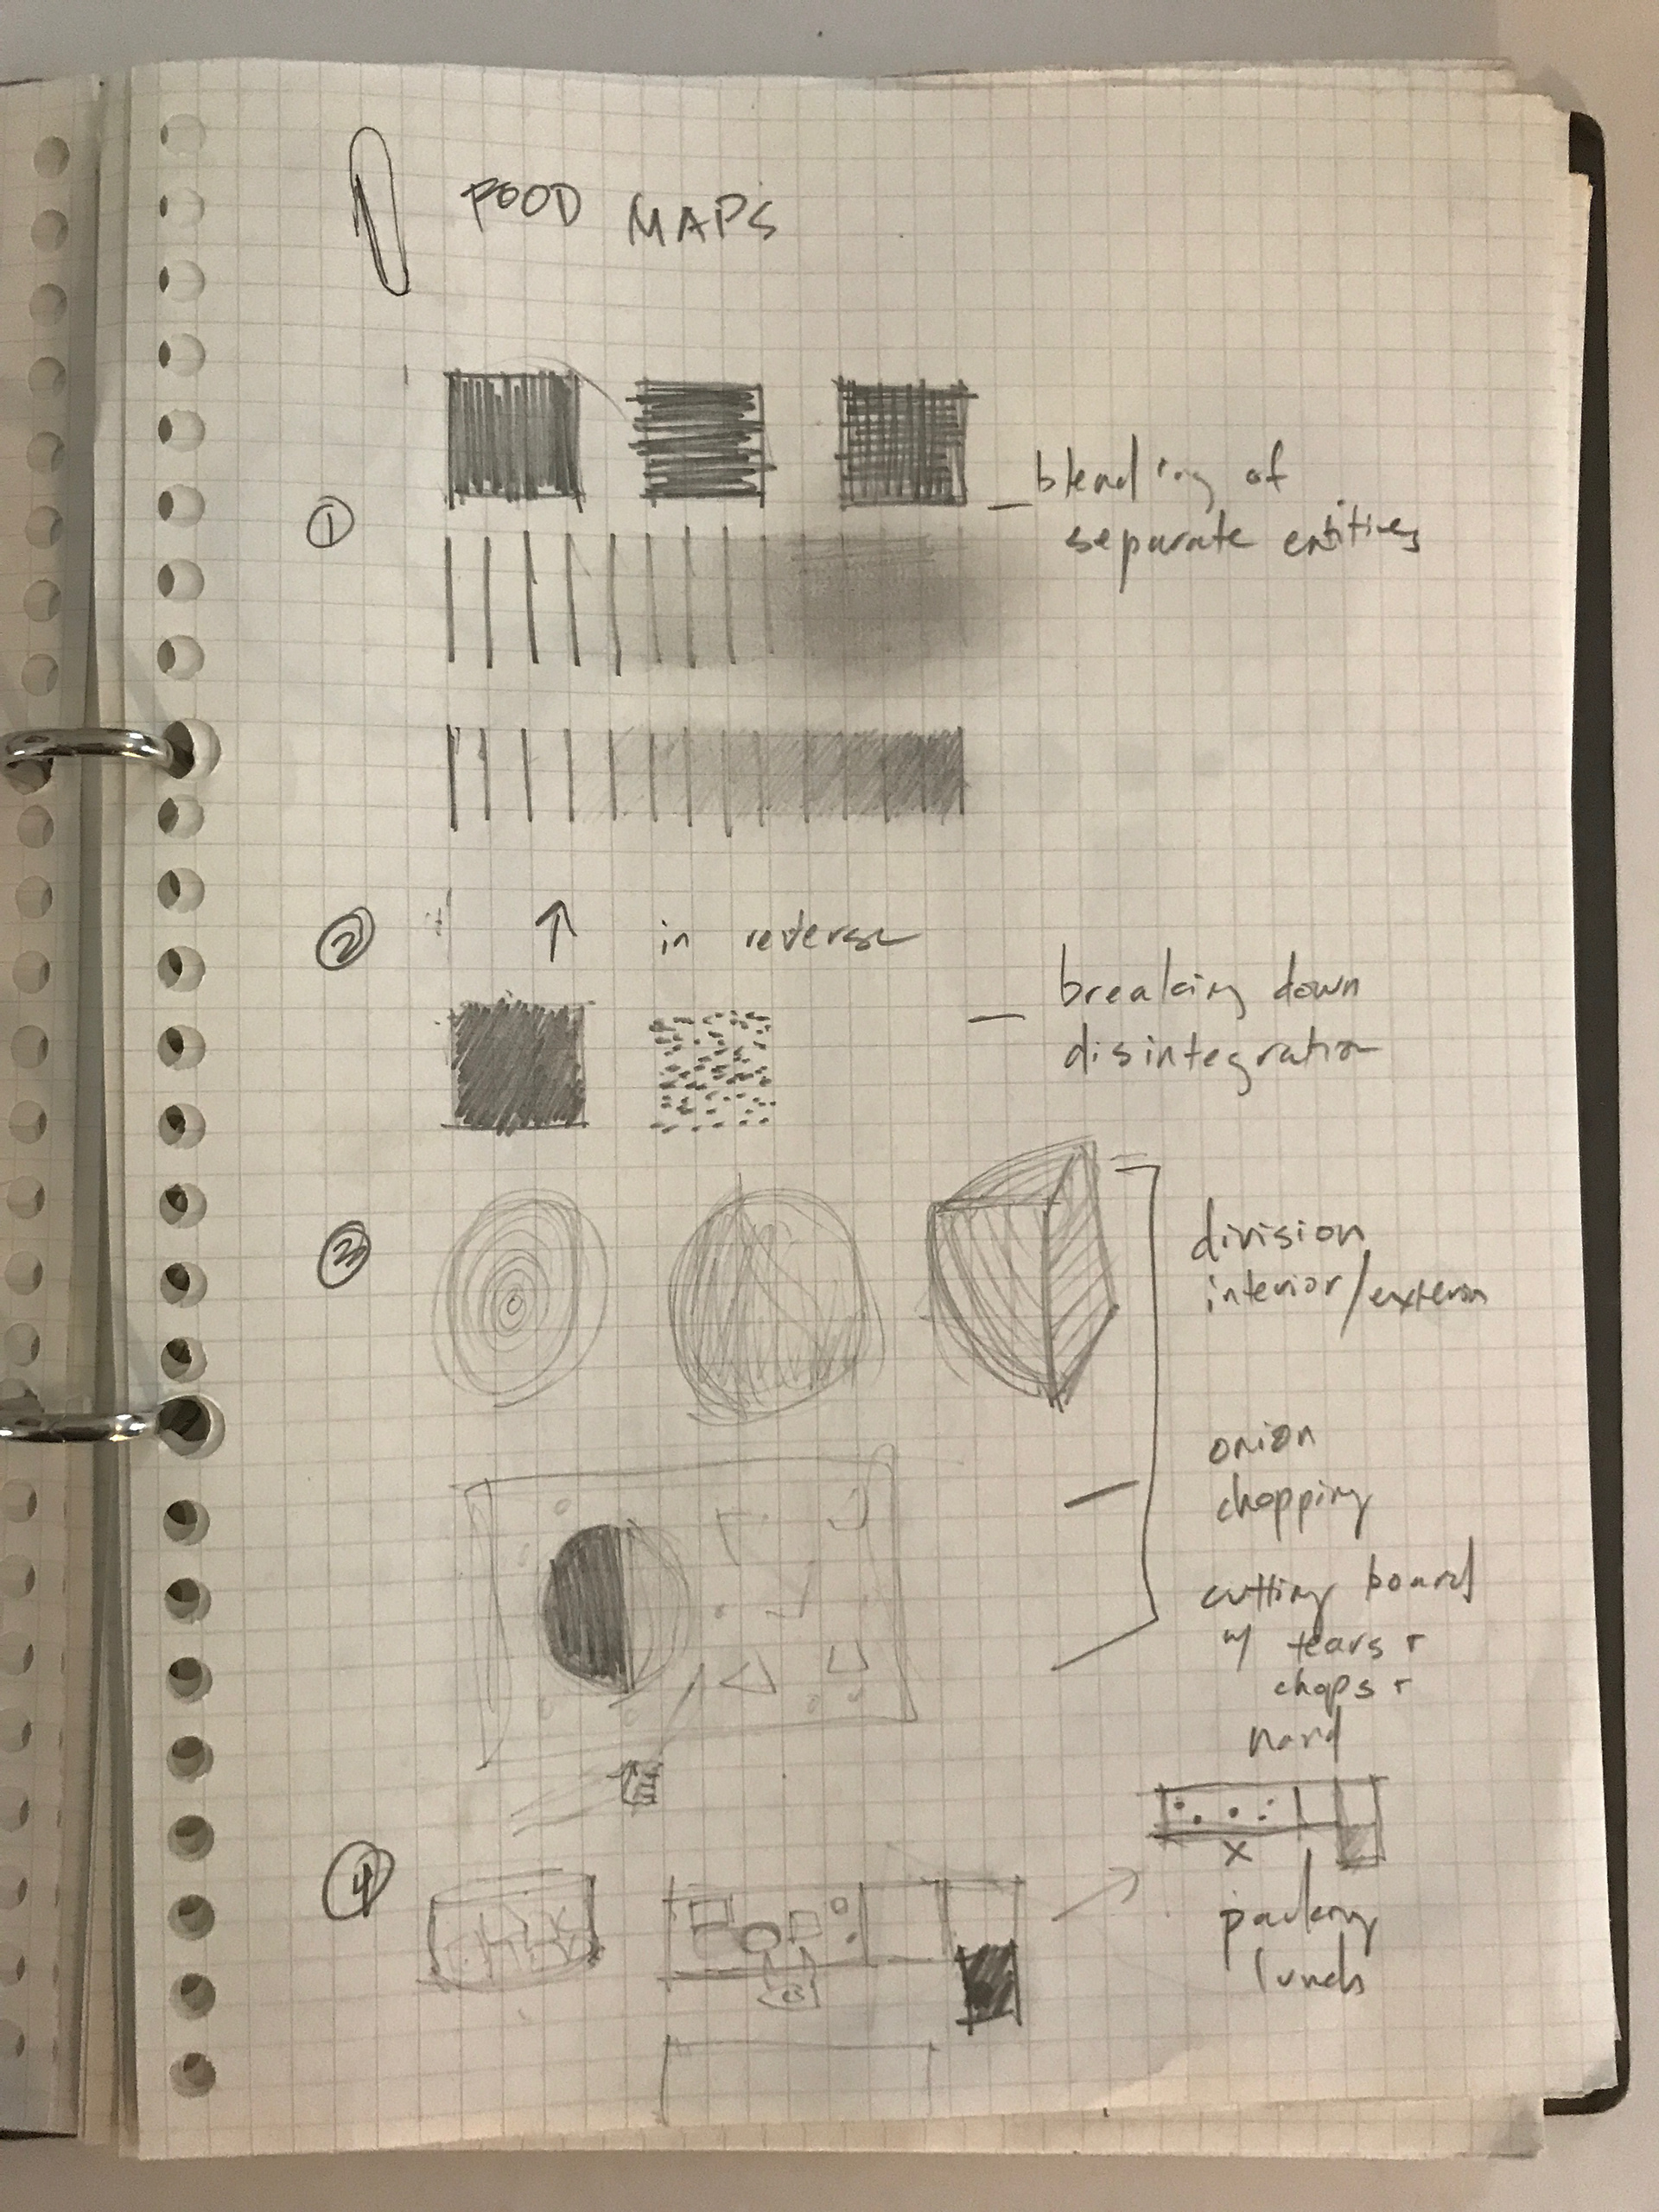 FOOD MAPS
①
blending of
separate entities
②
↑ in reverse
breaking down
disintegration
③
division
interior/exterior
onion
chopping
cutting board
w/ tears +
chops +
hand
④
X
packing
lunch